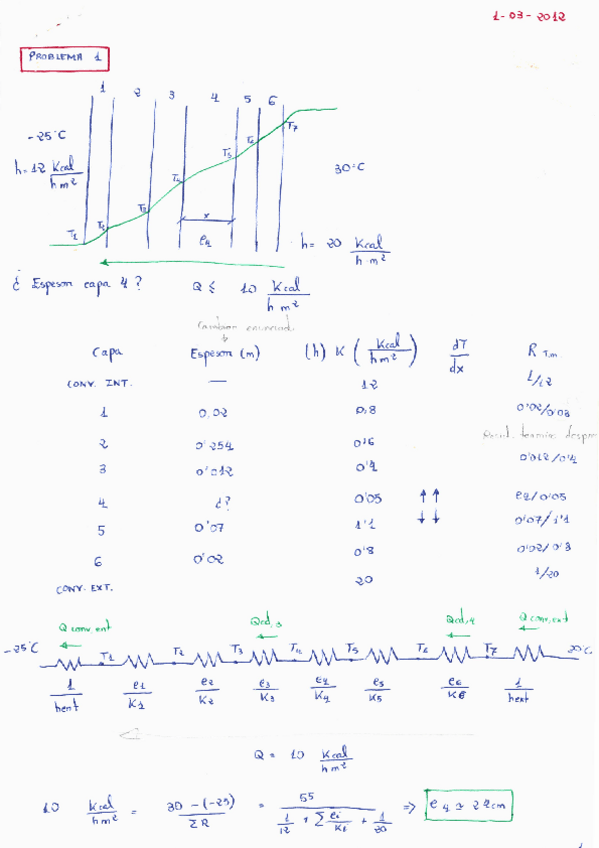 1-03-2012
PROBLEMA 1
1 2 3 4 5 6
-25°C
h=12 Kcal/hm²
T1 T2 T3 T4 T5 T6 T7
30°C
x
e4
h= 20 Kcal/h·m²
¿ Espesor capa 4 ? Q ≤ 10 Kcal/hm²
Cambiar enunciado
Capa Espesor (m) (h) K (Kcal/hm²) dT/dx R T.m.
CONV. INT. — 12 1/12
1 0.02 0,8 0'02/0'08
2 0'254 0'6
3 0'012 0'4 0'012/0'4
4 ¿? 0'05 ↑↑ e4/0'05
5 0'07 1'1 ↓↓ 0'07/1'1
6 0'02 0'8 0'02/0'8
CONV. EXT. 20 1/20
Q conv,ent Qcd,3 Qcd,4 Q conv,ext
-25°C T1 T2 T3 T4 T5 T6 T7
1/hent e1/K1 e2/K2 e3/K3 e4/K4 e5/K5 e6/K6 1/hext
Q = 10 Kcal/hm²
10 Kcal/hm² = 30-(-25)/ΣR = 55/(1/12 + Σ ei/Ki + 1/20) => e4 ≃ 22cm